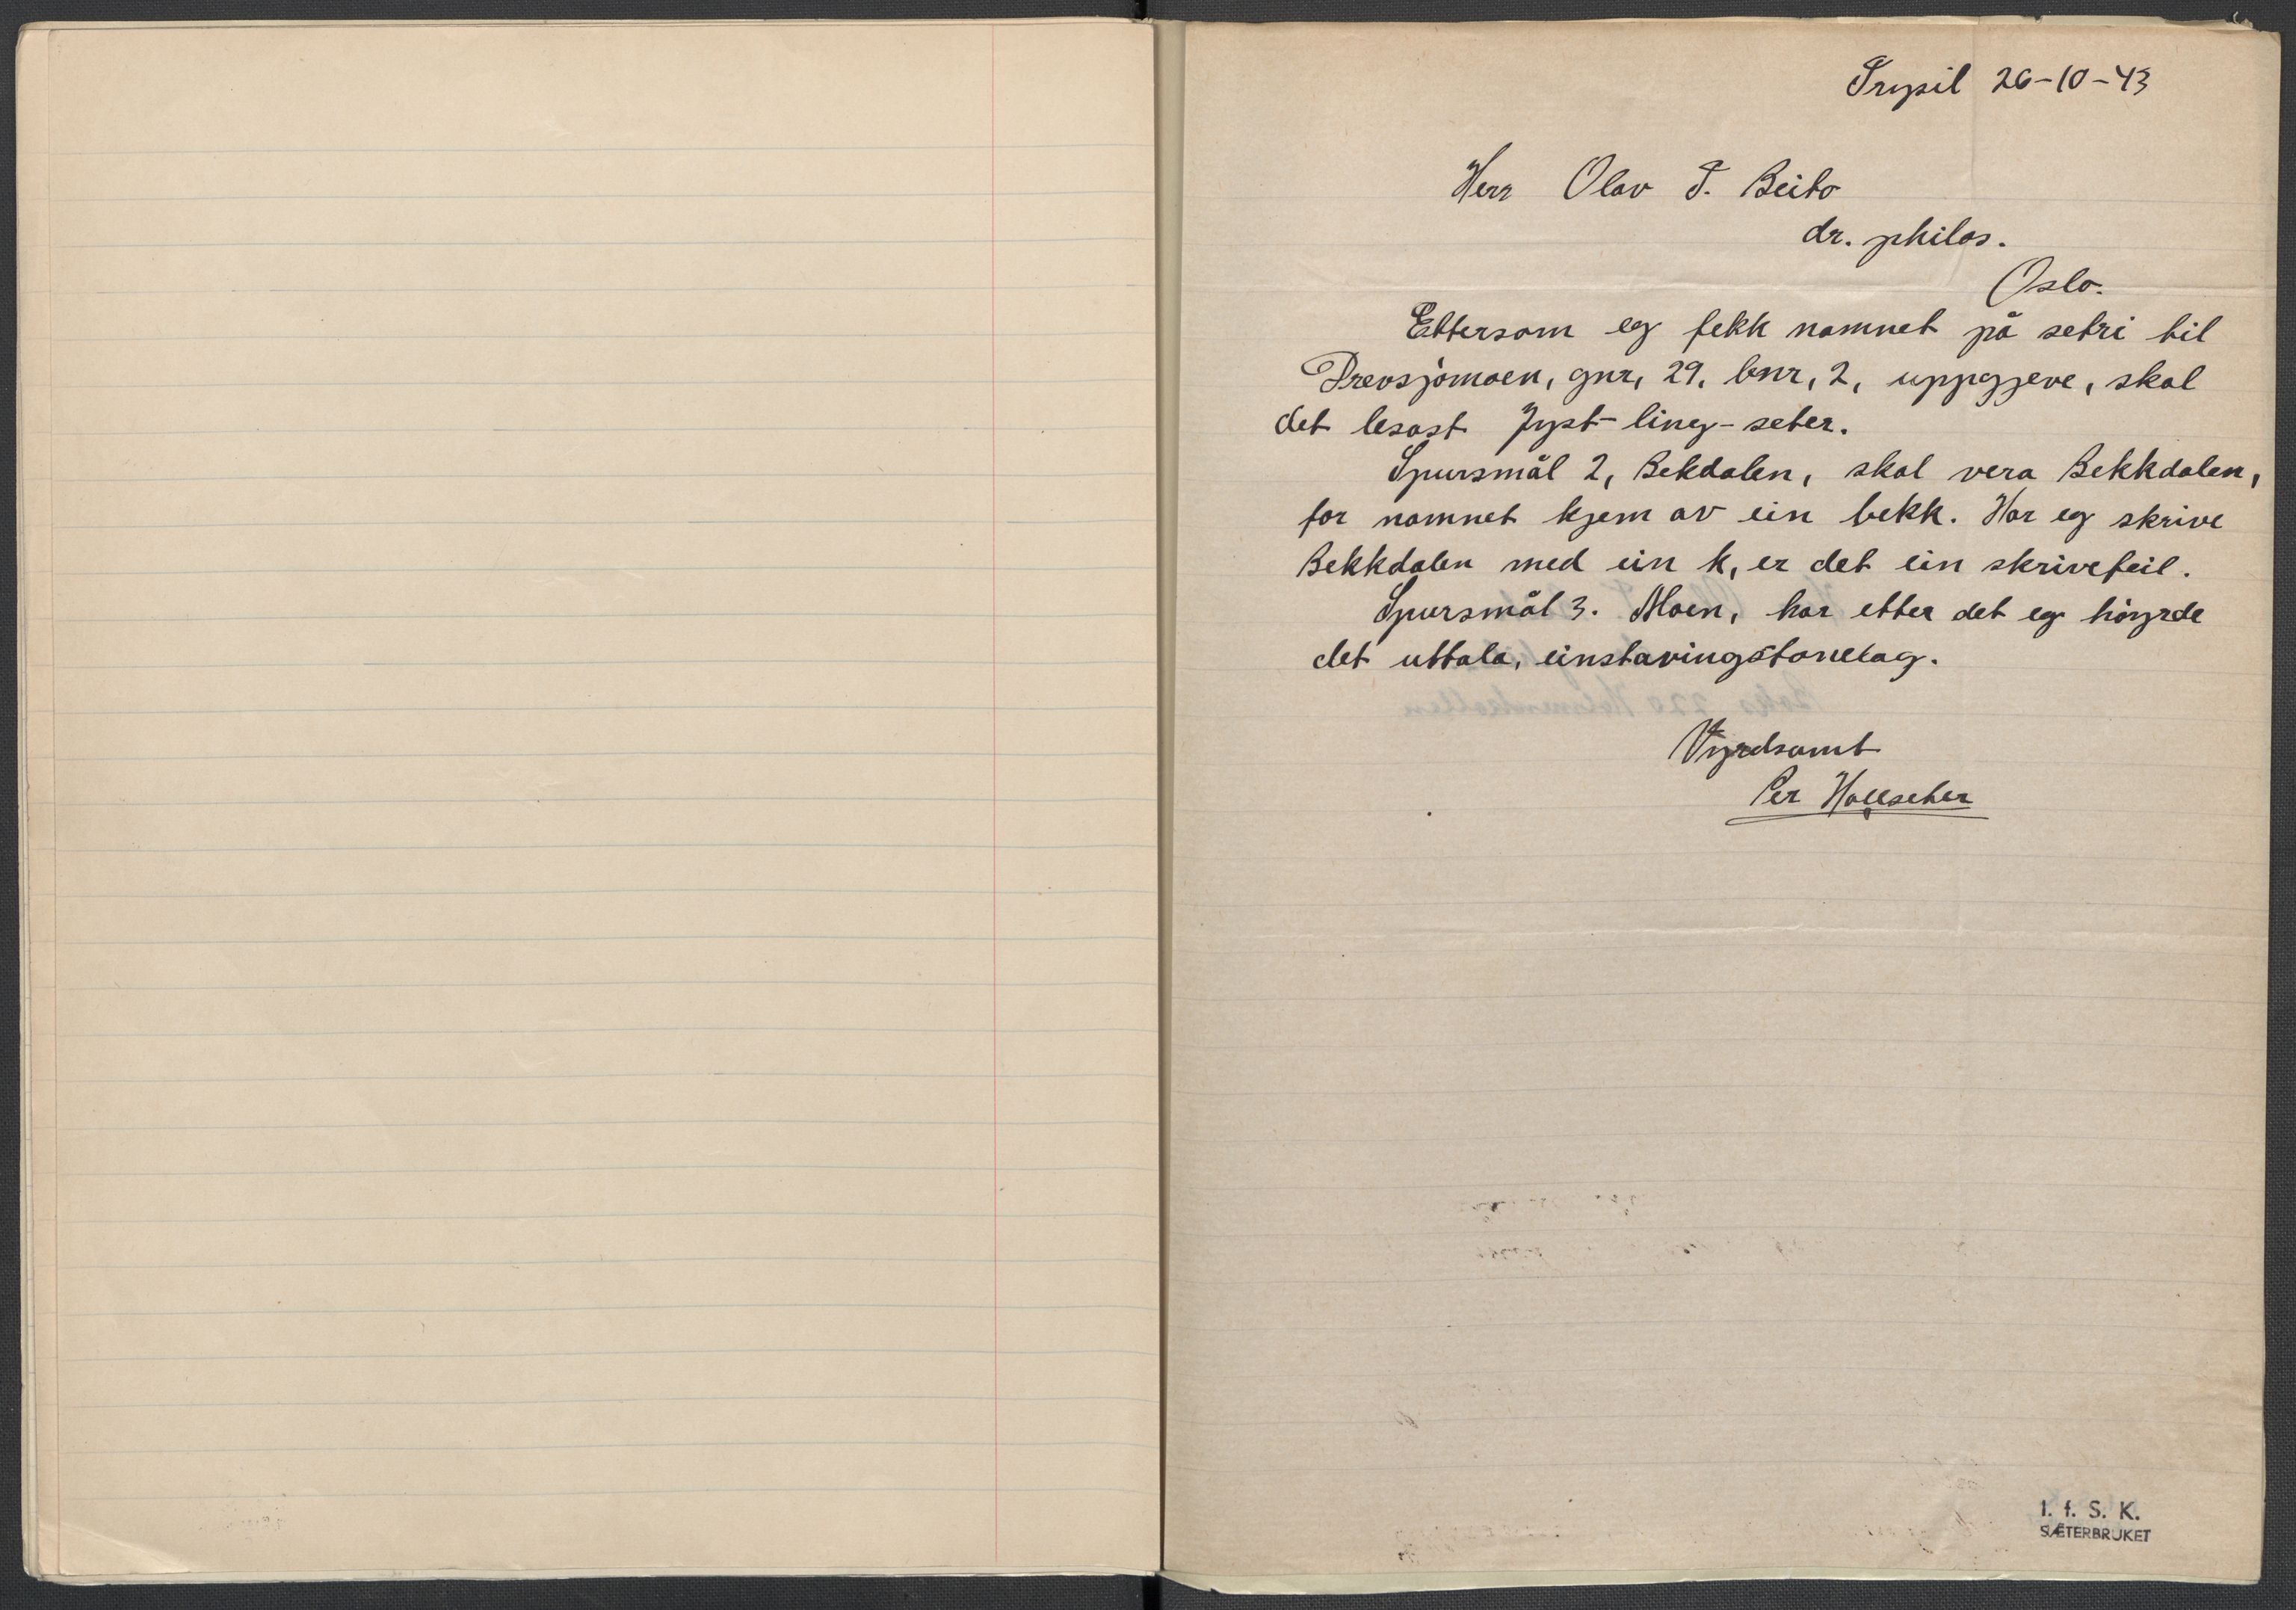 Trysil 26-10-43
Herr Olav T. Beito
dr. philos.
Oslo.
Ettersom eg fekk namnet på setri til
Drevsjømoen, gnr, 29, bnr, 2, uppgjeve, skal
det lesast Jyst-ling-seter.
Spursmål 2, Bekdalen, skal vera Bekkdalen,
for namnet kjem av ein bekk. Har eg skrive
Bekkdalen med ein k, er det ein skrivefeil.
Spursmål 3. Moen, har etter det eg høyrde
det uttala, einstavingstonelag.
Vyrdsamt
Per Hallseter
I. f. S. K.
SÆTERBRUKET